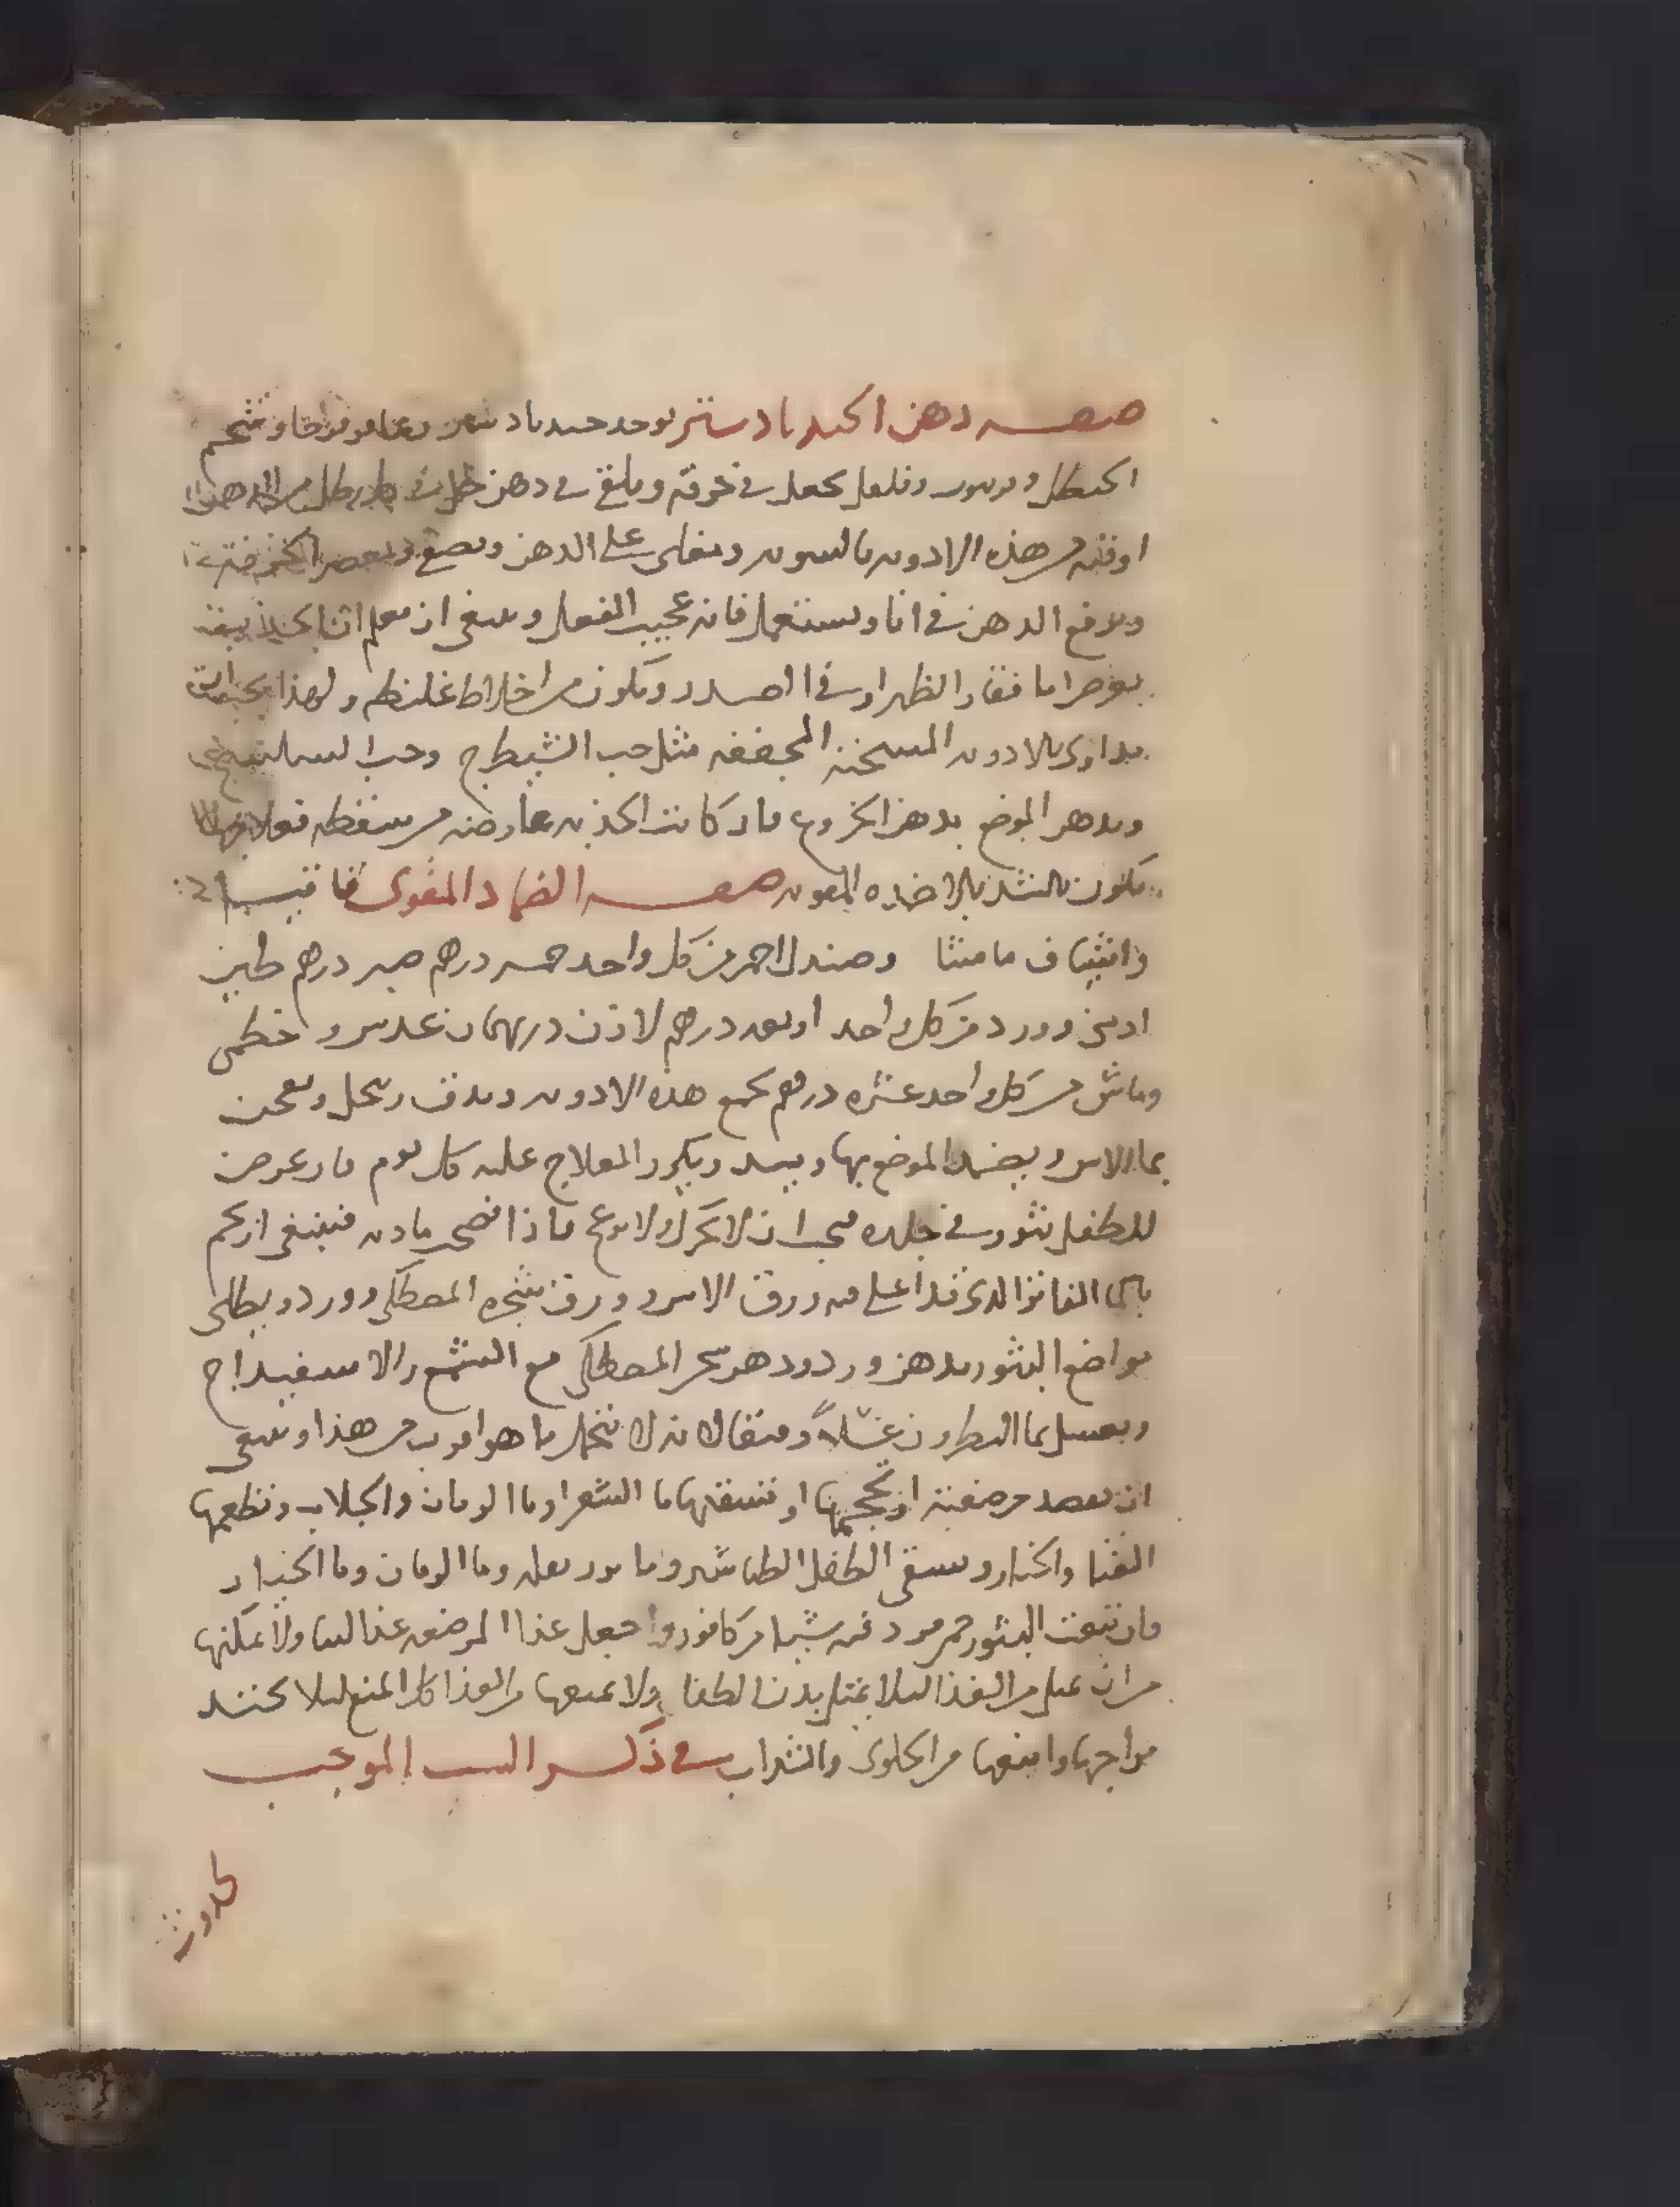 صفه دهن الجندبادستر يوخد جندبادستر وعاقرقرحا وشحم
الحنظل وفربيون وفلفل يجعل في خرقه ويلقى في دهن لكل رطل من الدهن
اوقيه من هذه الادويه بالسويه ويغلى على الدهن ويصفى ويعصر الخرقه
ويرفع الدهن في انا ويستعمل فانه عجيب الفعل وينبغي ان تعلم ان
يعرض اما في فقار الظهر او في الصدر ويكون من اخلاط غليظه ولهذا يجب ان
يداوى بالادويه المسخنه المجففه مثل حب الشيطرج وحب
ويدهن الموضع بدهن الخروع فان كانت الحدبه عارضه من سقطه فعلاجها
يكون بالشد بالاضمده المقويه صفه الضماد المقوى اقاقيا
واشياف مامیثا وصندل احمر من كل واحد خمسه درهم صبر درهم طين
ارمنى وورد من كل واحد اربعه درهم لاذن درهمان عدس وخطمى
وماش من كل واحد عشره درهم يجمع هذه الادويه ويدق وينخل ويعجن
بما الاس ويضمد الموضع بها ويشد ويكرر العلاج عليه كل يوم فان عرض
للطفل بثور في جلده فيجب ان لا يحرك ولا يوجع فاذا نضجت مادته فينبغي ان يحم
بالما الفاتر الذى قد اغلى فيه ورق الاس وورق شجره المصطكى وورد ويطلى
مواضع البثور بدهن ورد ودهن شجر المصطكى مع الشمع والاسفيداج
ويغسل بما النطرون غسلاً فان لم ينزل تحمل ما هو اقوى من هذا وينبغي
ان تفصد مرضعته او تحجمها او تسقيها ما الشعير او ما الرمان والجلاب وتطعمها
القثا والخيار ويسقى الطفل الطباشير وما بزر بقله وما الرمان وما الخيار
فان بقيت البثور حمر فزد فيه شيا من كافور واجعل غذا المرضعه غذا لينا ولا تمكنها
من ان تمتلى من الغذا ليلا يمتلى بدن الطفل ولا تمنعها من الغذا كل المنع ليلا يحتد
مزاجها وامنعها من الحلوى والشراب في ذكر السبب الموجب
لحدوث